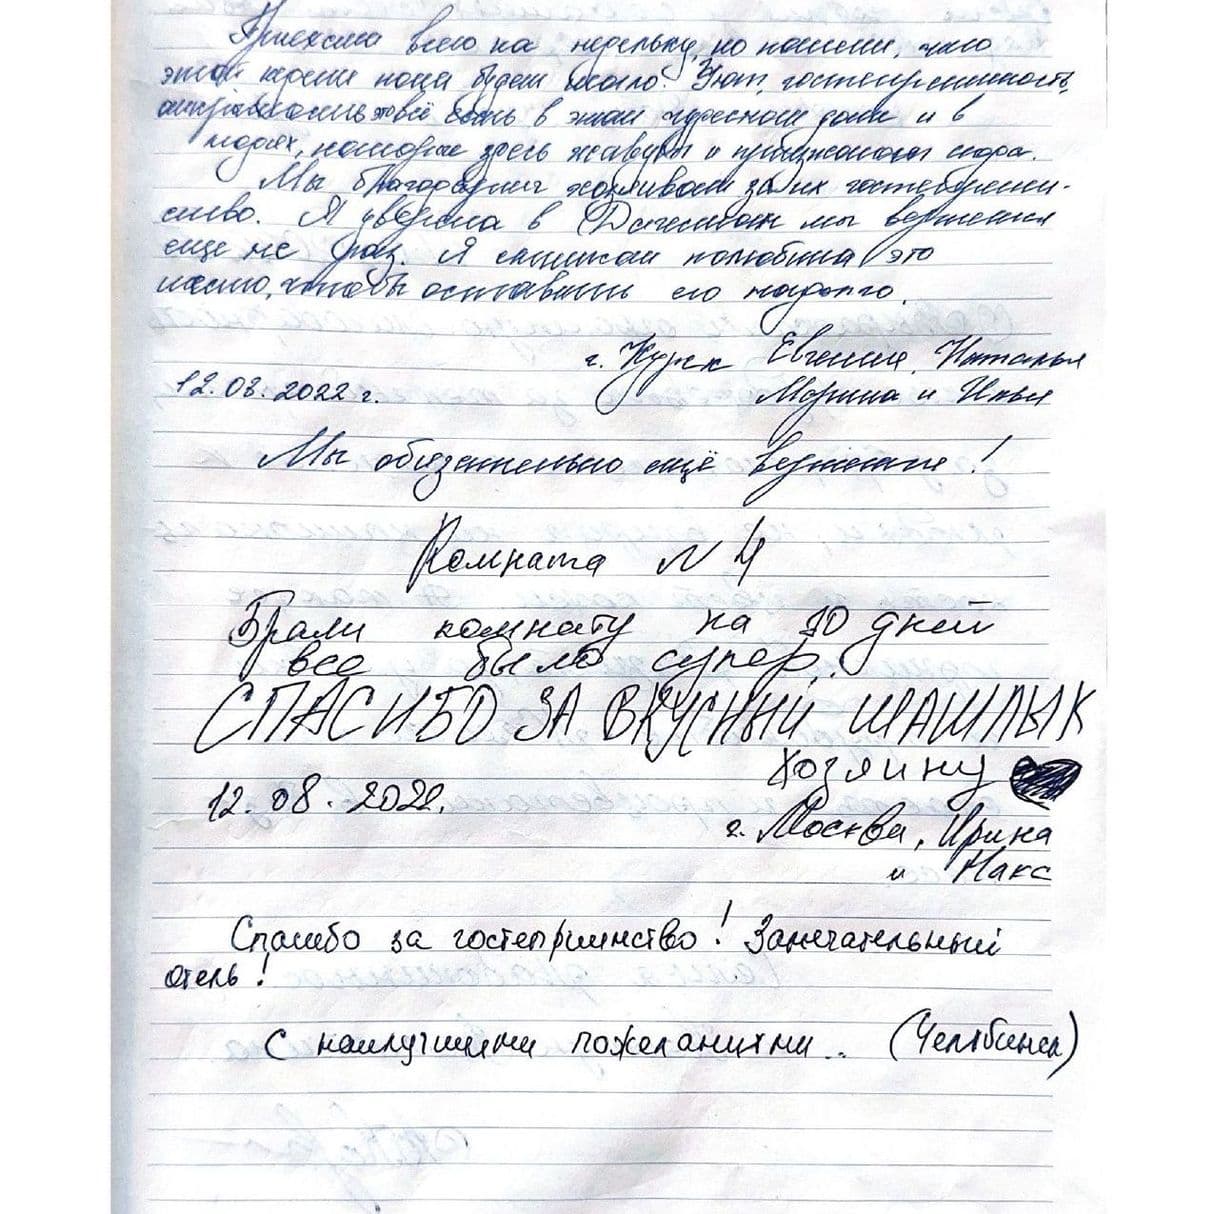 Приехали всего на недельку, но поняли, что
этой недели нам будет мало. Уют, гостеприимность,
всё есть в этом чудесном доме и в
людях, которые здесь живут и приезжают сюда.
Мы благодарим хозяивам за их гостеприим-
ство. Я уверена в Дагестан мы вернёмся
еще не раз. Я слишком полюбила это
место, чтобы оставить его надолго.
г. Курск Евгения, Наталья
12.08.2022 г. Марина и Илья
Мы обязательно ещё вернемся!
Комната N 4
Брали комнату на 10 дней
все было супер.
СПАСИБО ЗА ВКУСНЫЙ ШАШЛЫК
хозяину
12.08.2022.
г. Москва, Ирина
и Макс
Спасибо за гостеприимство! Замечательный
отель!
С наилучшими пожеланиями.. (Челябинск)